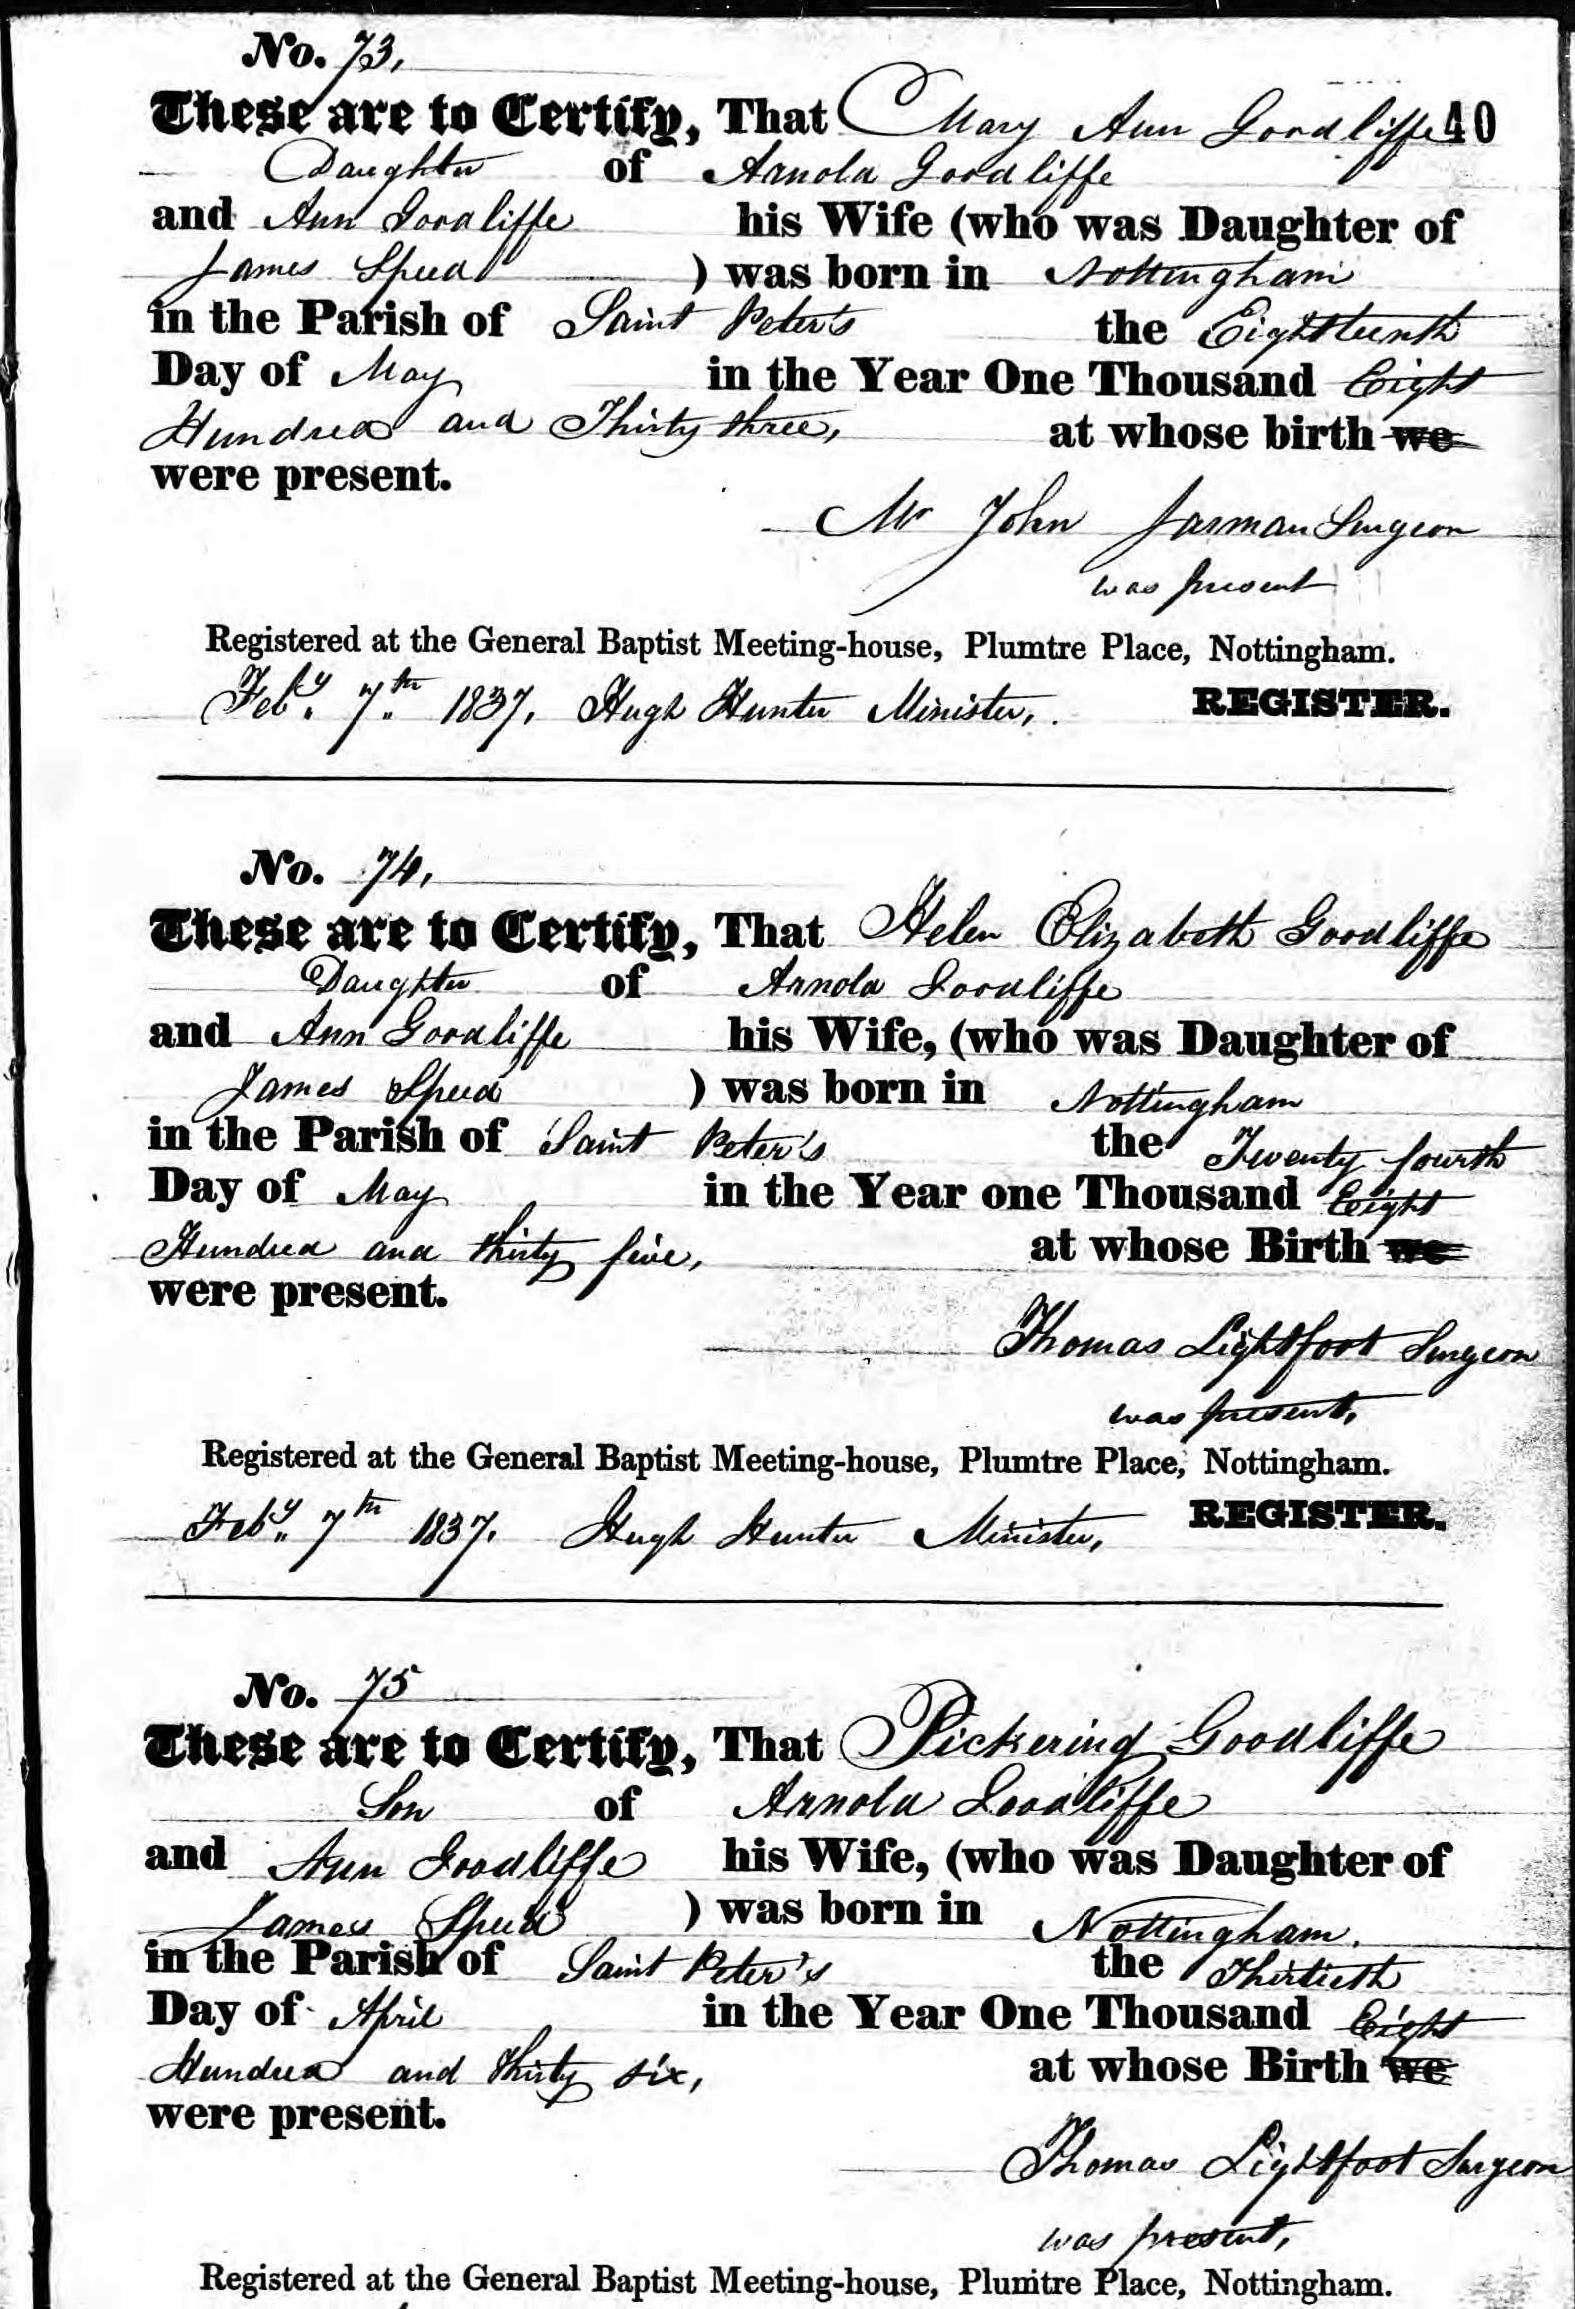 No. 73,
These are to Certify, That Mary Ann Goodliffe 40
Daughter of Arnold Goodliffe
and Ann Goodliffe his Wife (who was Daughter of
James Speed ) was born in Nottingham
in the Parish of Saint Peter's the Eighteenth
Day of May in the Year One Thousand Eight
Hundred and Thirty three, at whose birth we
were present.
Mr John Jarman Surgeon
was present
Registered at the General Baptist Meeting-house, Plumtre Place, Nottingham.
Feby. 7th 1837. Hugh Hunter Minister, REGISTER.
No. 74,
These are to Certify, That Helen Elizabeth Goodliffe
Daughter of Arnold Goodliffe
and Ann Goodliffe his Wife, (who was Daughter of
James Speed ) was born in Nottingham
in the Parish of Saint Peter's the Twenty fourth
Day of May in the Year one Thousand Eight
Hundred and thirty five, at whose Birth we
were present.
Thomas Lightfoot Surgeon
was present,
Registered at the General Baptist Meeting-house, Plumtre Place, Nottingham.
Feby. 7th 1837. Hugh Hunter Minister, REGISTER.
No. 75
These are to Certify, That Pickering Goodliffe
Son of Arnold Goodliffe
and Ann Goodliffe his Wife, (who was Daughter of
James Speed ) was born in Nottingham.
in the Parish of Saint Peter's the Thirtieth
Day of April in the Year One Thousand Eight
Hundred and thirty six, at whose Birth we
were present.
Thomas Lightfoot Surgeon
was present,
Registered at the General Baptist Meeting-house, Plumtre Place, Nottingham.